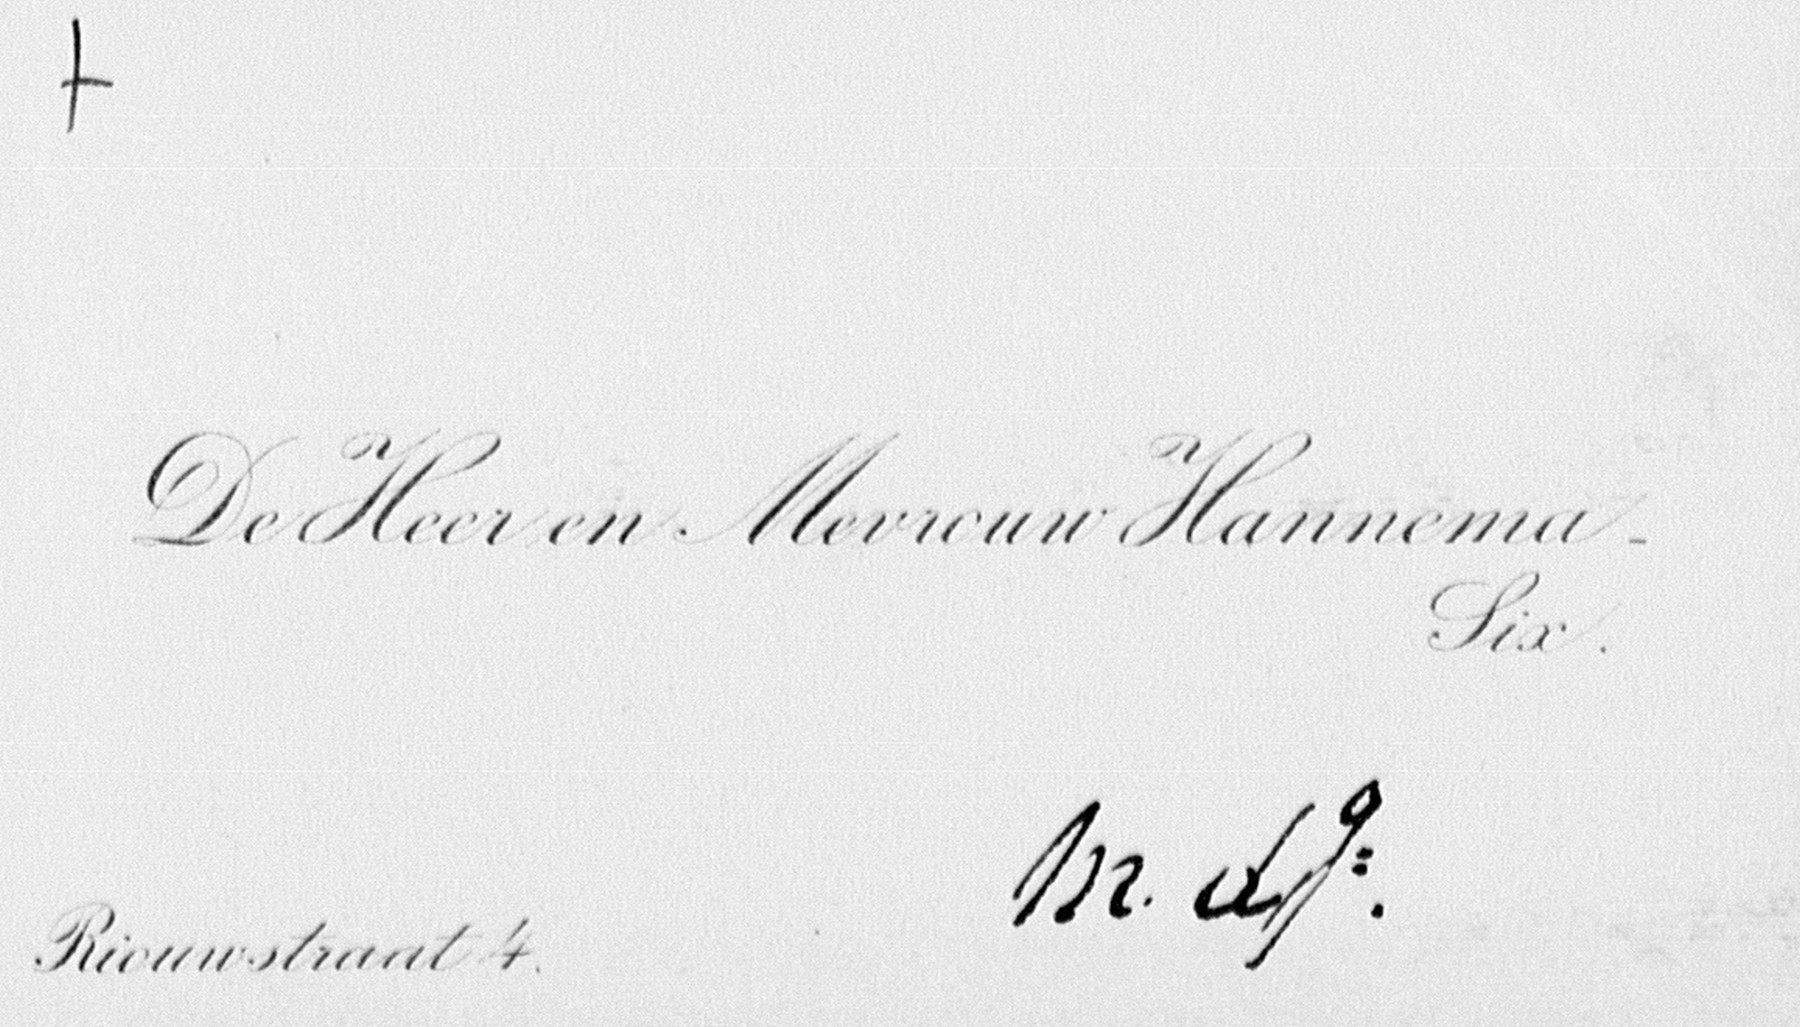 De Heer en Mevrouw Hannema-
Six.
m.
Riouwstraat 4.